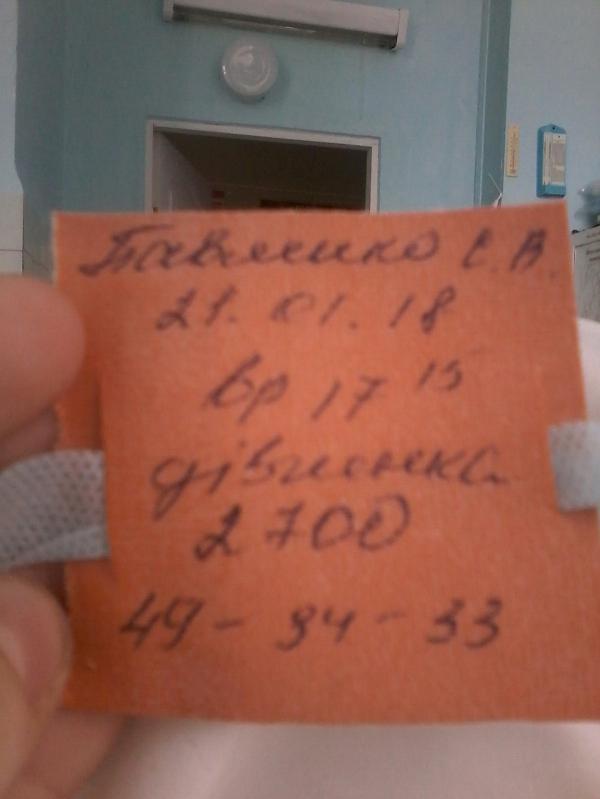 Павленко Є. В.
21. 01. 18
вр 17 15
дівчинка
2 700
49 - 34 - 33